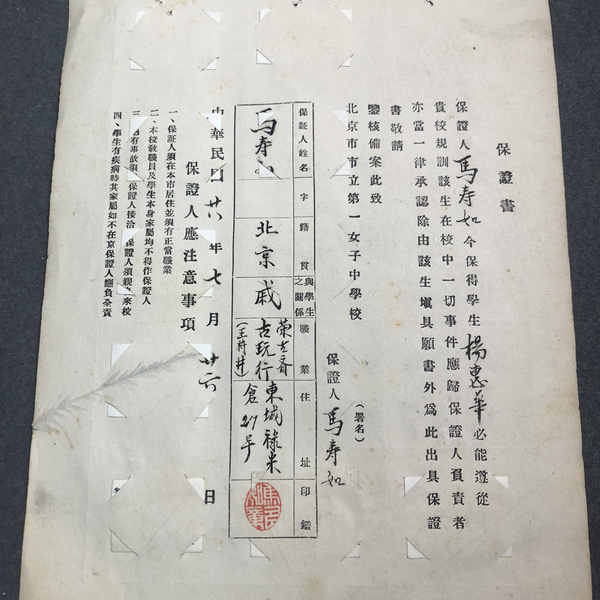 保證書
保證人馬壽如今保得學生楊惠華必能遵從
貴校規訓該生在校中一切事件應歸保證人負責者
亦當一律承認除由該生塡具願書外爲此出具保證
書敬請
鑒核備案此致
北京市市立第一女子中學校
保證人馬壽如
(署名)
保証人姓名 字 籍貫 與學生之關係 職業 住址 印鑑
馬壽如 北京 戚 榮古齋古玩行(王府井) 東城祿米倉27号
中華民國廿八年七月廿六日
保證人應注意事項
一、保証人須在本市居住並須有正當職業
二、本校敎職員及學生本身家屬均不得作保證人
三、遇有事故須保證人接洽 保證人須親來校
四、學生有疾病時其家屬如不在京保證人應負全責